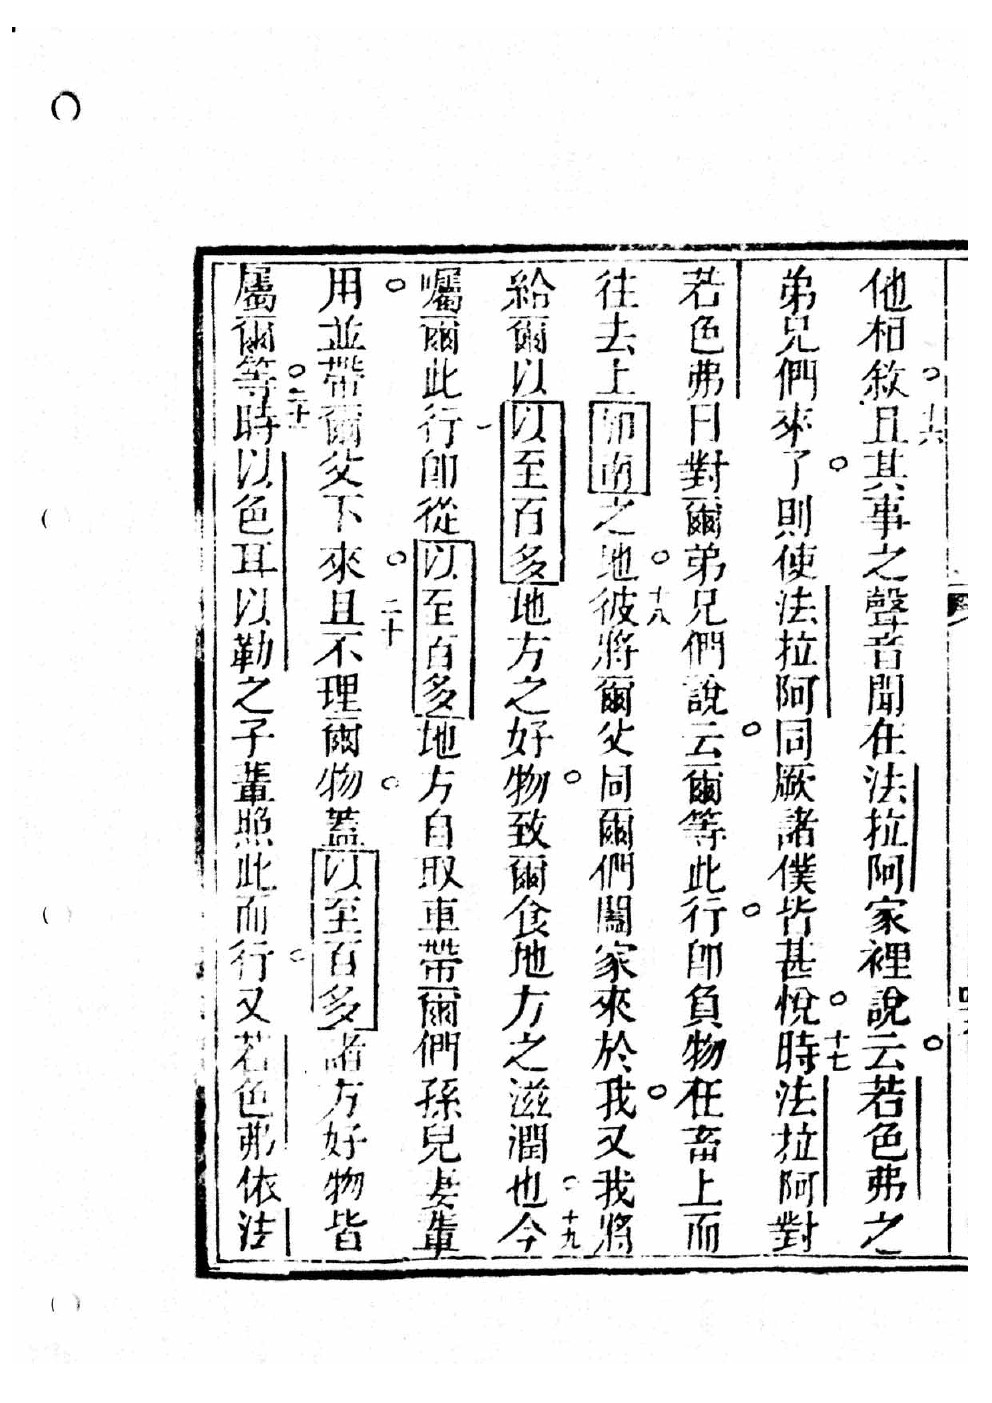 他相敘十六且其事之聲音聞在法拉阿家裡說云若色弗之
弟兄們來了則使法拉阿同厥諸僕皆甚悅十七時法拉阿對
若色弗曰對爾弟兄們說云爾等此行即負物在畜上而
往去上加南之地十八彼將爾父同爾們闔家來於我又我將
給爾以以至百多地方之好物致爾食地方之滋潤也十九今
囑爾此行即從以至百多地方自取車帶爾們孫兒妻輩
用並帶爾父下來二十且不理爾物蓋以至百多諸方好物皆
屬爾等二十時以色耳以勒之子輩照此而行又若色弗依法